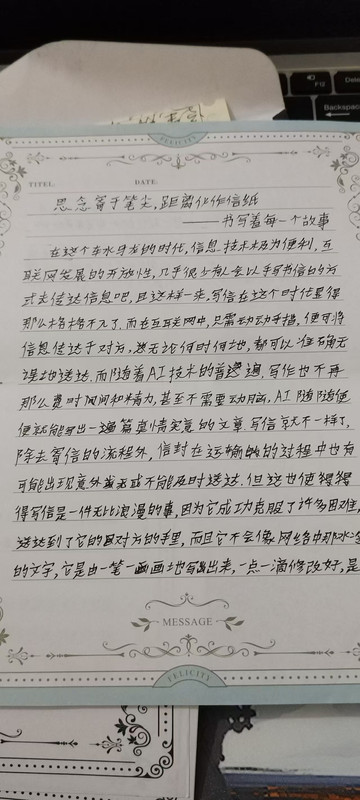 F12
Backspace
FELICITY
TITEL: DATE:
思念寄于笔尖,距离化作信纸
——书写着每一个故事
在这个车水马龙的时代,信息技术极为便利,互
联网发展的开放性,几乎很少有人会以手写书信的方
式去传达信息吧,且这样一来,写信在这个时代显得
那么格格不入了.而在互联网中,只需动动手指,便可将
信息传达于对方,无论何时何地,都可以准确无
误地送达.而随着AI技术的普遍,写作也不再
那么费时间和精力,甚至不需要动脑,AI随随便
便就能写出一篇篇真情实意的文章.写信就不一样了,
除去寄信的流程外,信封在运输的过程中也有
可能出现意外或不能及时送达.但这也使得
得写信是一件无比浪漫的事,因为它成功克服了许多困难,
送达到了它的对方的手里,而且它不会像网络中那冰冷
的文字,它是由一笔一画地写出来,一点一滴修改好,是
MESSAGE
FELICITY